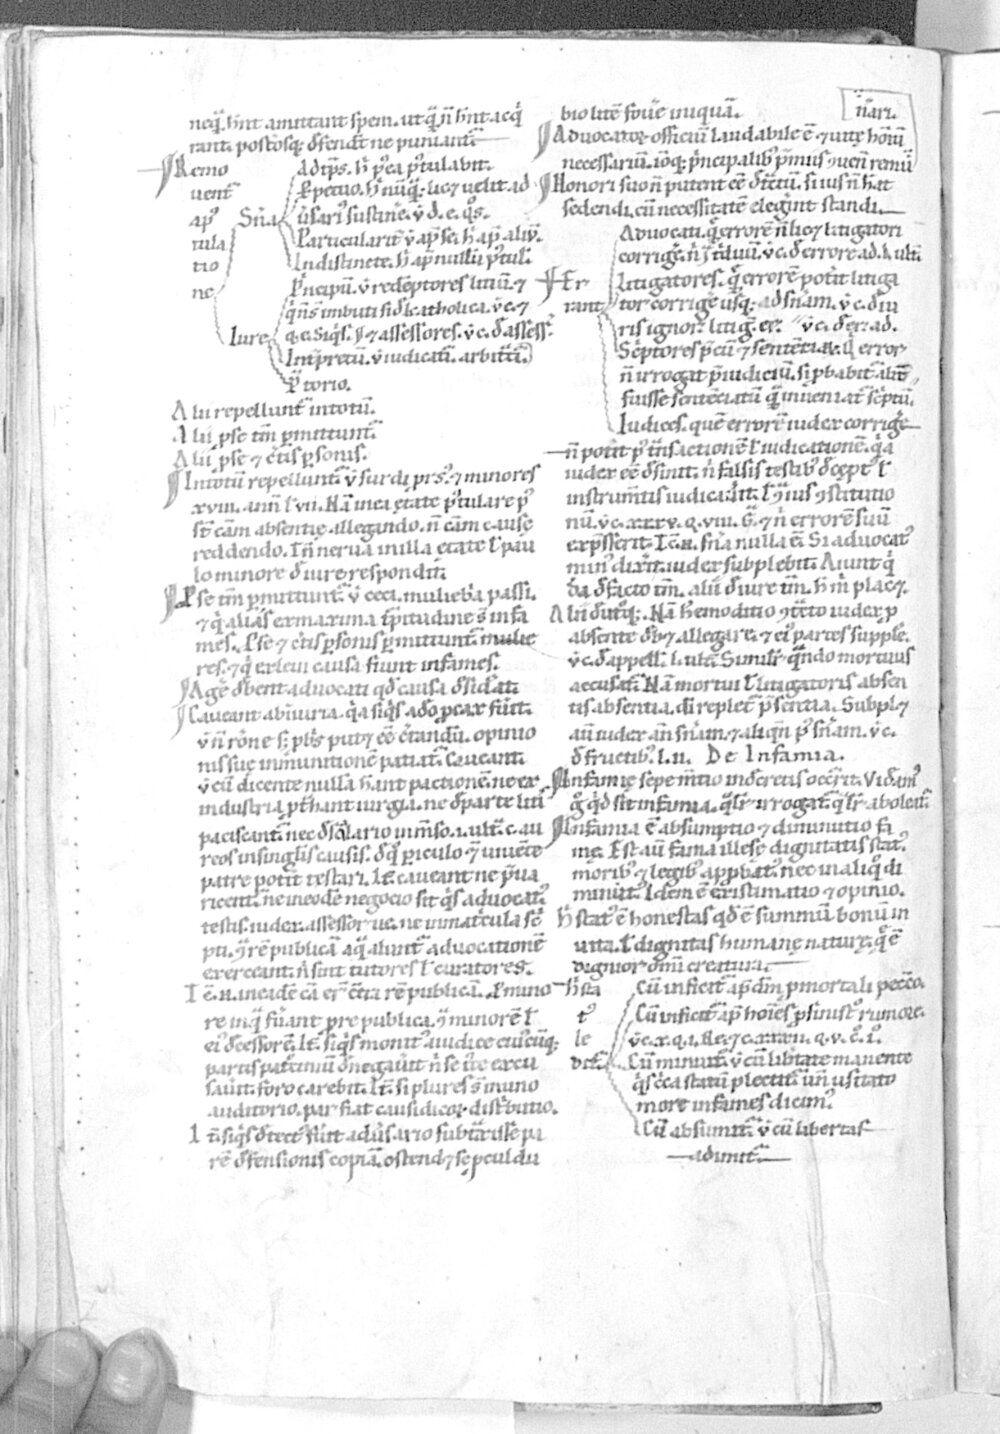 neq̃. hñt amittant spem. ut q̃ ñ hñt acq̃
rant. postosq; d̃fendt̃ ne puniant̃
Remo
vent̃
ap̾
tula
tio
ne
Sñia
Adtp̃s. h̃ p̾ea p̾tulabit.
Ppetuo. h̃ nũq; licꝫ velit ad
ũsariꝰ sustine̾. v̾ d. e. q̾s.
Particularit̃ v̾ ap̾ se. h̃ ap̾ aliũ.
Indistincte. h̃ ap̾ nullũ p̾tul.
Iure
P̾ncipũ. v̾ redẽptores litiũ. ⁊
q̾ ñ s̃ imbuti fid̾ katholica. v̾c. ⁊
q. c. Siq̾s. ⁊ assessores. v̾c. d̾ assess̃.
Imp̾retũ. v̾ iudicatũ. arbit̃ũ
p̃torio.
Alii repellunt̃ intotũ.
Alii pse tm̃ p̾mittunt̃.
Alii pse ⁊ c̾tis p̾sonis.
Intotũ repellunt̃ v̾ surdi, prs̾. ⁊ minores
xviii. anñ l̾ vii. Nã inea ętate p̾tulare p̾
st̃ cãm absentię allegando. ñ cãm causę
reddendo. Iñ nerua inilla etate l̾ pau
lo minore d̾ iure respondit.
Pse tm̃ p̾mittunt̃ v̾ ceci. mulieb̾a passi.
⁊ q̾ alias̾ exmaxima t̾pitudine s̃ infa
mes. Pse ⁊ c̾tis p̾sonis p̾mittunt̃ mulie
res. ⁊ q̾ exleui causa fiunt infames.
Age̾ d̾bent aduocati qd̾ causa d̾sid̾at.
Caueant abiniuria. q̾a siq̾s ado p̾cax fũit.
v̾ ñ rõne s; p̾b̾s putꝫ cẽ c̾tandũ. opinio
nis suę inminutionẽ patiat̃. Caueant.
v̾ cũ dicente nullã hant pactionẽ. ne ex
industria p̾t̾hant iurgia. ne d̾ parte liti
paciscant̃. nec d̾ salario inm̃so. i. ult̃. c. au
reos insingl̾is causis. d̾ q̾ p̾iculo ⁊ uiuẽte
patre potit̃ testari. It̃. caueant ne p̾ua
ricent̃. ne ineodẽ negocio sit q̾s aduocatꝰ
testis. iudex. assessor ue. ne inmat̾cula sc̾
pti. ⁊ rẽpublicã aq̾ alunt̃ aduocationẽ
exerceant. ñ sint tutores l̾ curatores.
ineadẽ cã er̃ c̾tra rẽpublicã. l̾ mino
re inq̾ fũant pre publica. ⁊ minorẽ l̾
eiꝰ d̾cessorẽ. It̃. siq̾s monitꝰ aiudice cuiꝰcũq;
partis patciniũ d̾negaũit ñ se ite̾ excu
saũit. foro carebit. It̃. si plures s̃ inuno
auditorio. par fiat causidicoꝝ distbutio.
It̃. siq̾s d̾tectꝰ fũit adũsario subt̾xisse pa
rẽ d̾fensionis copiã. ostendꝫ se p̾cul du
bio litẽ foue̾ iniquã.
ñari.
Aduocatoꝝ officiũ laudabile ẽ ⁊ uitę hoĩũ
necessariũ. ioq; p̾ncipalib̾ p̾miis
Honori suo ñ putent eẽ d̾t̾ctũ. si ius ñ h̾at
sedendi. cũ necessitatẽ eleg̾int standi.
Er
rant
Aduocati. q̾ errorẽ ñ licꝫ litigatori
corrige̾. ñ ĩt̾ diuũ. v̾c. d̾ errore ad. l. ult.
Litigatores. q̾ errorẽ pot̾it litiga
tor corrige̾ usq; ad sñiam. v̾c. d̾ iu
ris ignor. litig̾. er. v̾c. d̾ er. ad.
Sc̾ptores p̾cũ ⁊ sententiaꝝ. q̾ error
ñ irrogat p̾iudiciũ. si p̾babit̃ alit̃
fuisse sentẽciatũ q̾ inueniat̃ sc̾ptũ.
Iudices. quẽ errorẽ iudex corrige̾
ñ pot̾it p̾ t̾nsactionẽ l̾ iudicationẽ. q̾a
iudex eẽ d̾sinit. ñ falsis testib̾ d̾ceptꝰ l̾
instrum̃tis iudicaũit. l̾ ⁊ ius ꝯstitutio
nũ. v̾c. xxxv. q. viiii. ⁊ ñ errorẽ suũ
exp̾sserit. sñia nulla ẽ. Si aduocatꝰ
minꝰ dixit. iudex supplebit. Aiunt q̾
dã d̾ facto tm̃. alii d̾ iure tm̃. h̃ m̾ placꝫ.
Alii d̾ utq̾;. Nã h̃emoditio ꝯt̾cto iudex p̾
absente d̾bꝫ allegare. ⁊ eiꝰ partes supple̾.
v̾c. d̾ appell. l. ulẽ. Simil̾r quando mortuus
accusat̃. Nã mortui l̾ litigatoris absen
tis absentia. di replet̃ p̾sentia. Supplꝫ
aũ iudex añ sñiam. ⁊ aliq̃n p̾ sñiam. v̾c.
d̾ fructib̾. l. ii. De Infamia.
Infamię sepe m̃tio ind̾cretis oc̾rit. Vidam̾ꝰ
g̾ q̾d sit infamia. q̾l̾r irrogat̃. q̾l̾r aboleat̃.
Infamia ẽ absumptio ⁊ diminutio fa
mę. Est aũ fama illesę dignitatis statꝰ
moribꝰ ⁊ legibꝰ app̾batꝰ. nec inaliq̾ di
minutꝰ. Idem ẽ existimatio ⁊ opinio.
h̃ statꝰ ẽ honestas qd̾ ẽ summũ bonũ in
uita. l̾ dignitas humanę naturę. q̾ ẽ
dignior om̃i creatura.
h̃ sta
tꝰ
le
dit̃
Cũ inficit̃ ap̾ d̃m p̾ mortali peccõ.
Cũ inficit̃ ap̾ hoĩes p̾ sinistrꝰ rumore.
Cũ minuit̃. v̾ cũ lib̾tate manente
q̾s c̾ca statum plectit̃. uñ usitato
more infames dicim̾ꝰ.
Cũ absumit̃. v̾ cũ libertas
adimit̃.